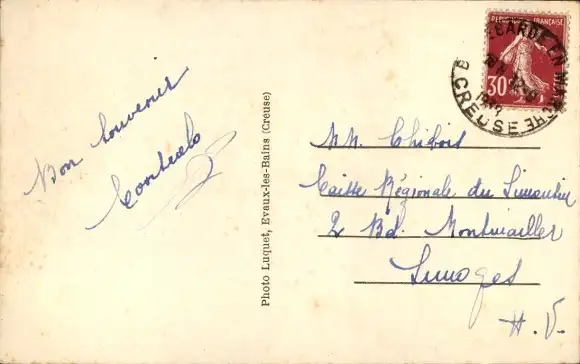 Bon Souvenir
Cordiale
Photo Luquet, Evaux-les-Bains (Creuse)
REPUBLIQUE FRANÇAISE
30
EN MARCHE
CREUSE
MM. Thibois
Caisse Régionale du Limousin
2 Bd. Montmailler
Limoges
H. V.